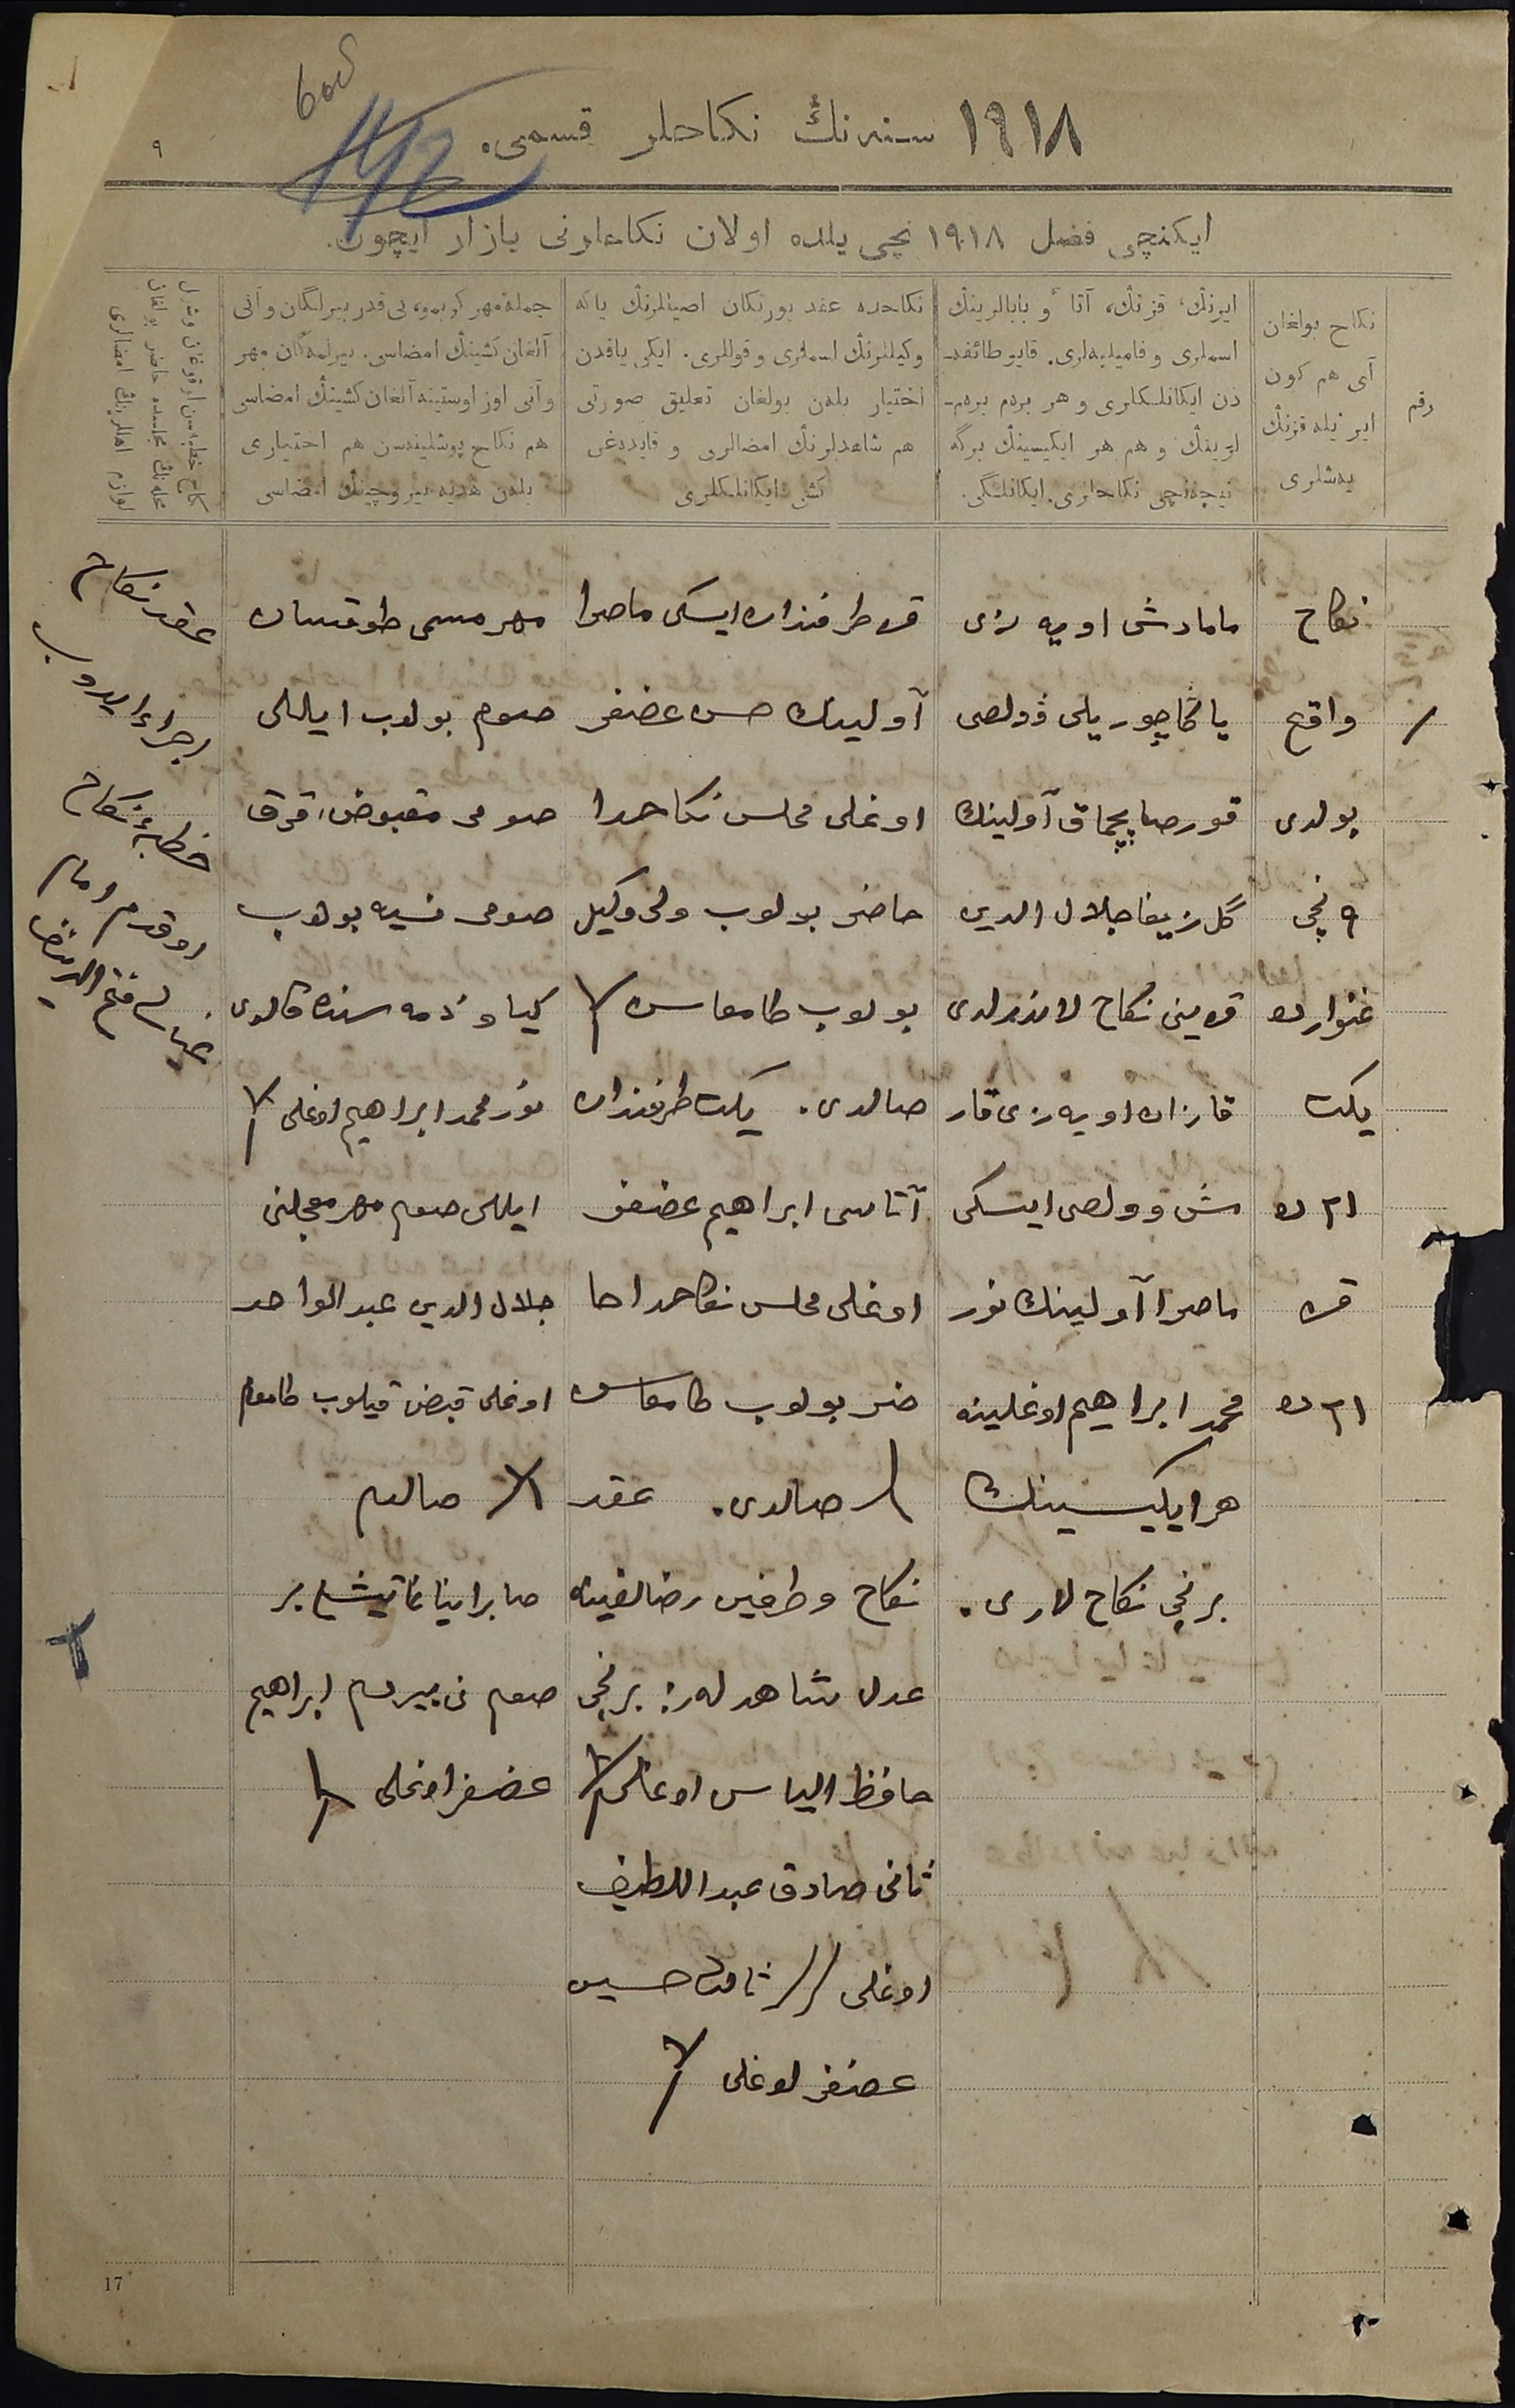 ١٩١٨ سنه نڭ نكاحلر قسمى.
٩
ايكنچى فصل ١٩١٨ نچى يلده اولان نكاحلرنى يازار ايچون.
رقم
نكاح بولغان
آى هم كون
اير ئيله قزنڭ
يەشلرى
ايرنڭ، قزنڭ، آتا و بابالرينڭ
اسملرى و فاميليەلرى. قايو طائفه‌-
دن ايكانلكلرى و هر برم برم-
لرينڭ و هم هر ايكيسينڭ برگه
نيچەنچى نكاحلرى ايكانلگى.
نكاحده عقد يورتكان اصيللرنڭ ياكه
وكيللرنڭ اسملرى و قوللرى. ايكى ياقدن
اختيار بلەن بولغان تعليق صورتى
هم شاهدلرنڭ امضالرى و قايدەغى
كشى ايكانلكلرى
جملۀ مهر كوبمو، نى قدر بيرلگان و آنى
آلغان كشينڭ امضاسى. بيرلمەگان مهر
و آنى اوز اوستينه آلغان كشينڭ امضاسى
هم نكاح پوشلينەسن هم اختيارى
بلەن هديه بيروچينڭ امضاسى
نكاح
واقع
بولدى
٩ نچى
غنوارده
يكت
٢١ ده
قز
٢١ ده
مامادش اويه زى
ياڭاچوريلى ۋولصى
قورصا پچماق آولينڭ
گل زيفا جلال الدين
قزينى نكاح لاندرلدى
قازان اويه زى قار
مش وولصى ايسكى
ماصرا آولينڭ نور
محمد ابراهيم اوغلينه
هر ايكيسينڭ
برنچى نكاح لارى.
قز طرفندان ايسكى ماصرا
آولينڭ حسن غضنفر
اوغلى مجلس نكاحدا
حاضر بولوب ولى وكيل
بولوب طامغاسن
صالدى. يكت طرفندان
آتاسى ابراهيم غضنفر
اوغلى مجلس نكاحدا حا
ضر بولوب طامغاسن
صالدى. عقد
نكاح و طرفين رضالغينه
عدل شاهدلەر: برنچى
حافظ الياس اوغلى
ثانى صادق عبداللطيف
اوغلى // ثالث حسين
غضنفر اوغلى
مهر مسمى طوقسان
صوم بولوب ايللى
صومى مقبوض، قرق
صومى نسيه بولوب
كياو ذمه سنده قالدى
نورمحمد ابراهيم اوغلى
ايللى صوم مهر معجلنى
جلال الدين عبدالواحد
اوغلى قبض قيلوب طامغام
صالدم
صوم نى بيردم ابراهيم
غضنفر اوغلى
عقد نكاح
اجراء ايدوب
خطبۀ نكاح
اوقدم امام
17